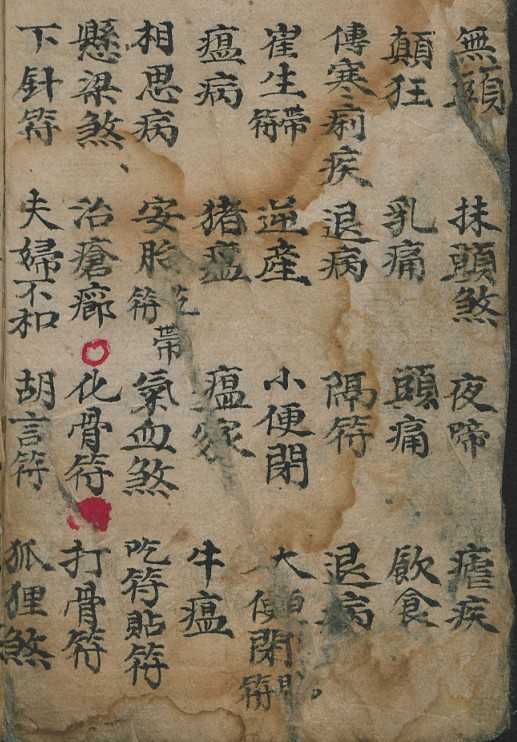 無頭 抹頭煞 夜啼 瘧疾
顛狂 乳痛 頭痛 飲食
傳寒痢疾 退病 隔符 退病
崔生帶符 逆產 小便閉 大便閉符
瘟病 猪瘟 瘟 牛瘟
相思病 安胎符吃帶 氣血煞 吃符貼符
懸梁煞、 治瘡癤 化骨符 打骨符
下針符 夫婦不和 胡言符 狐狸煞